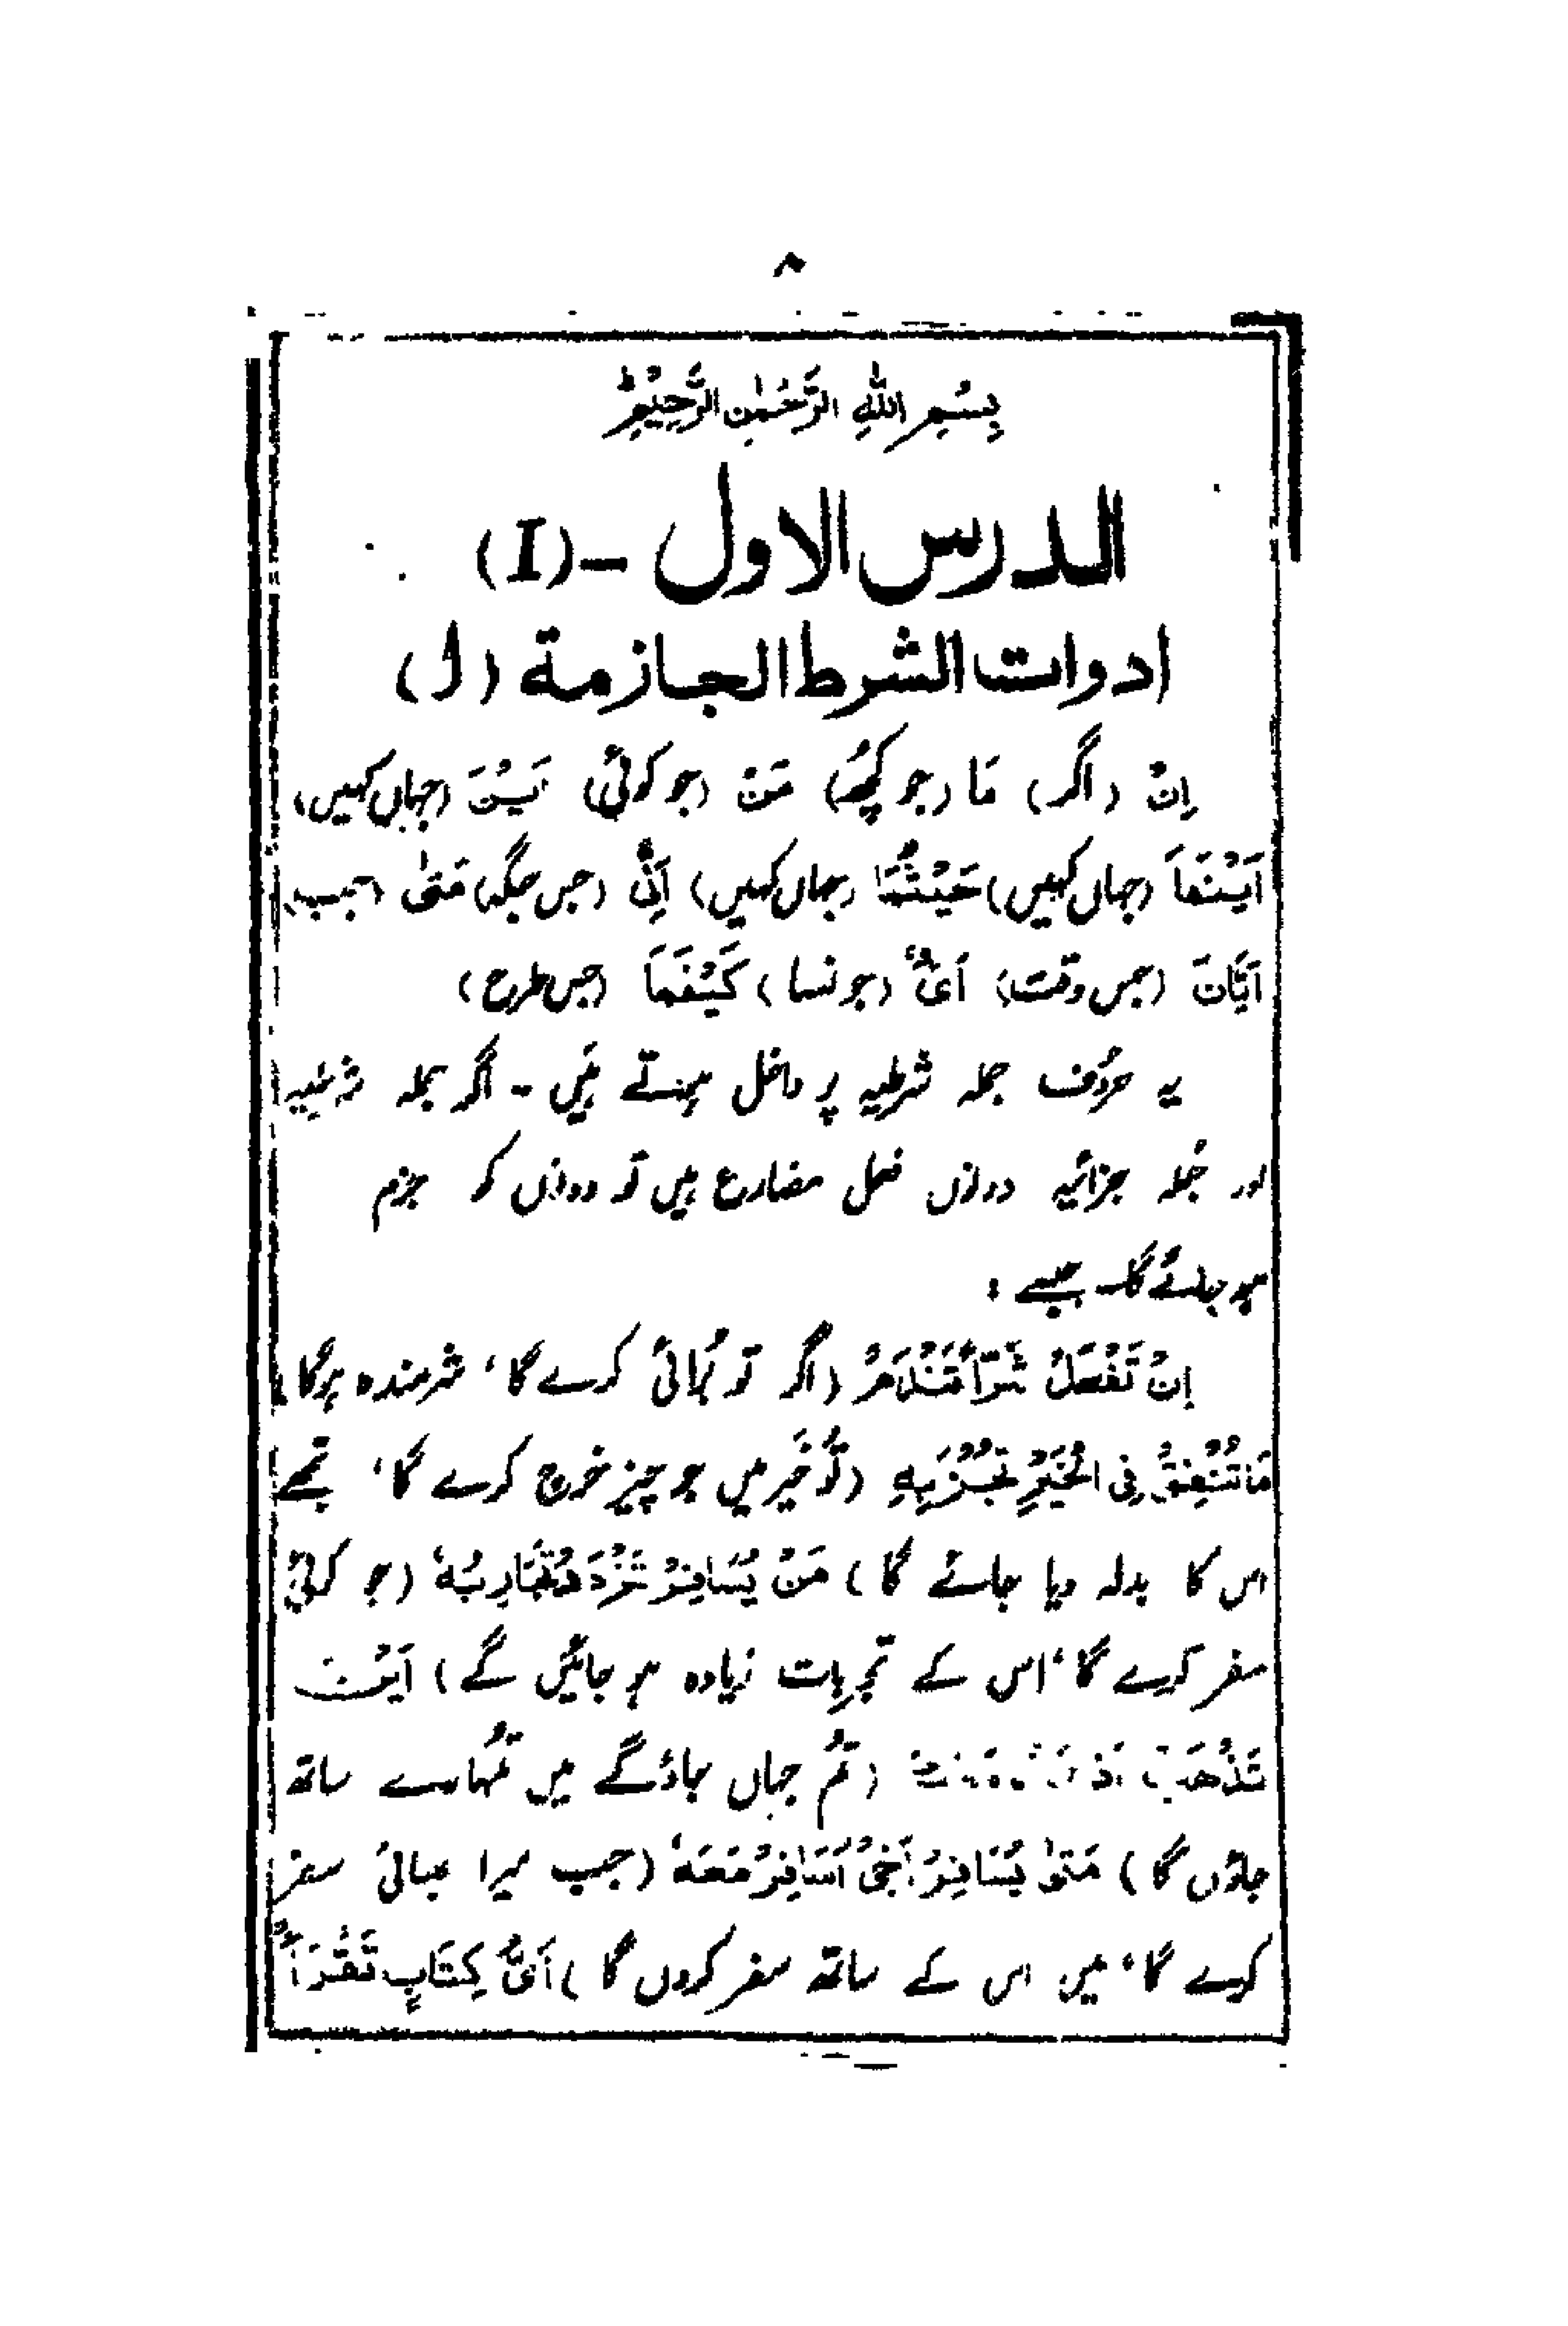 ۸
بِسْمِ اللهِ الرَّحْمٰنِ الرَّحِيْمِ
الدرس الاول -(I)
ادوات الشرط الجازمة (ا)
اِنْ (اگر) مَا (جو کچھ) مَنْ (جو کوئی) اَيْنَ (جہاں کہیں)
اَيْنَمَا (جہاں کہیں) حَيْثُمَا (جہاں کہیں) اَنّٰى (جس جگہ) مَتٰى (جب)
اَيَّانَ (جس وقت) اَىُّ (جونسا) كَيْفَمَا (جس طرح)
یہ حروف جملہ شرطیہ پر داخل ہوتے ہیں - اگر جملہ شرطیہ
اور جملہ جزائیہ دونوں فعل مضارع ہیں تو دونوں کو جزم
ہو جائے گا۔ جیسے :
اِنْ تَفْعَلْ شَرّاً تَنْدَمْ (اگر تو بُرائی کرے گا، شرمندہ ہوگا)
مَا تُنْفِقْ فِى الْخَيْرِ تُجْزَ بِهِ (تُو خَیر میں جو چیز خرچ کرے گا، تجھے
اس کا بدلہ دیا جائے گا) مَنْ يُسَافِرْ تَزْدَدْ تَجَارِبُهٗ (جو کوئی
سفر کرے گا، اس کے تجربات زیادہ ہو جائیں گے) اَيْنَ
تَذْهَبْ (تُم جہاں جاؤ گے میں تُمہارے ساتھ
جاؤں گا) مَتٰى يُسَافِرْ اَخِىْ اُسَافِرْ مَعَهٗ (جب میرا بھائی سفر
کرے گا، میں اس کے ساتھ سفر کروں گا) اَىَّ كِتَابٍ تَقْرَأْ